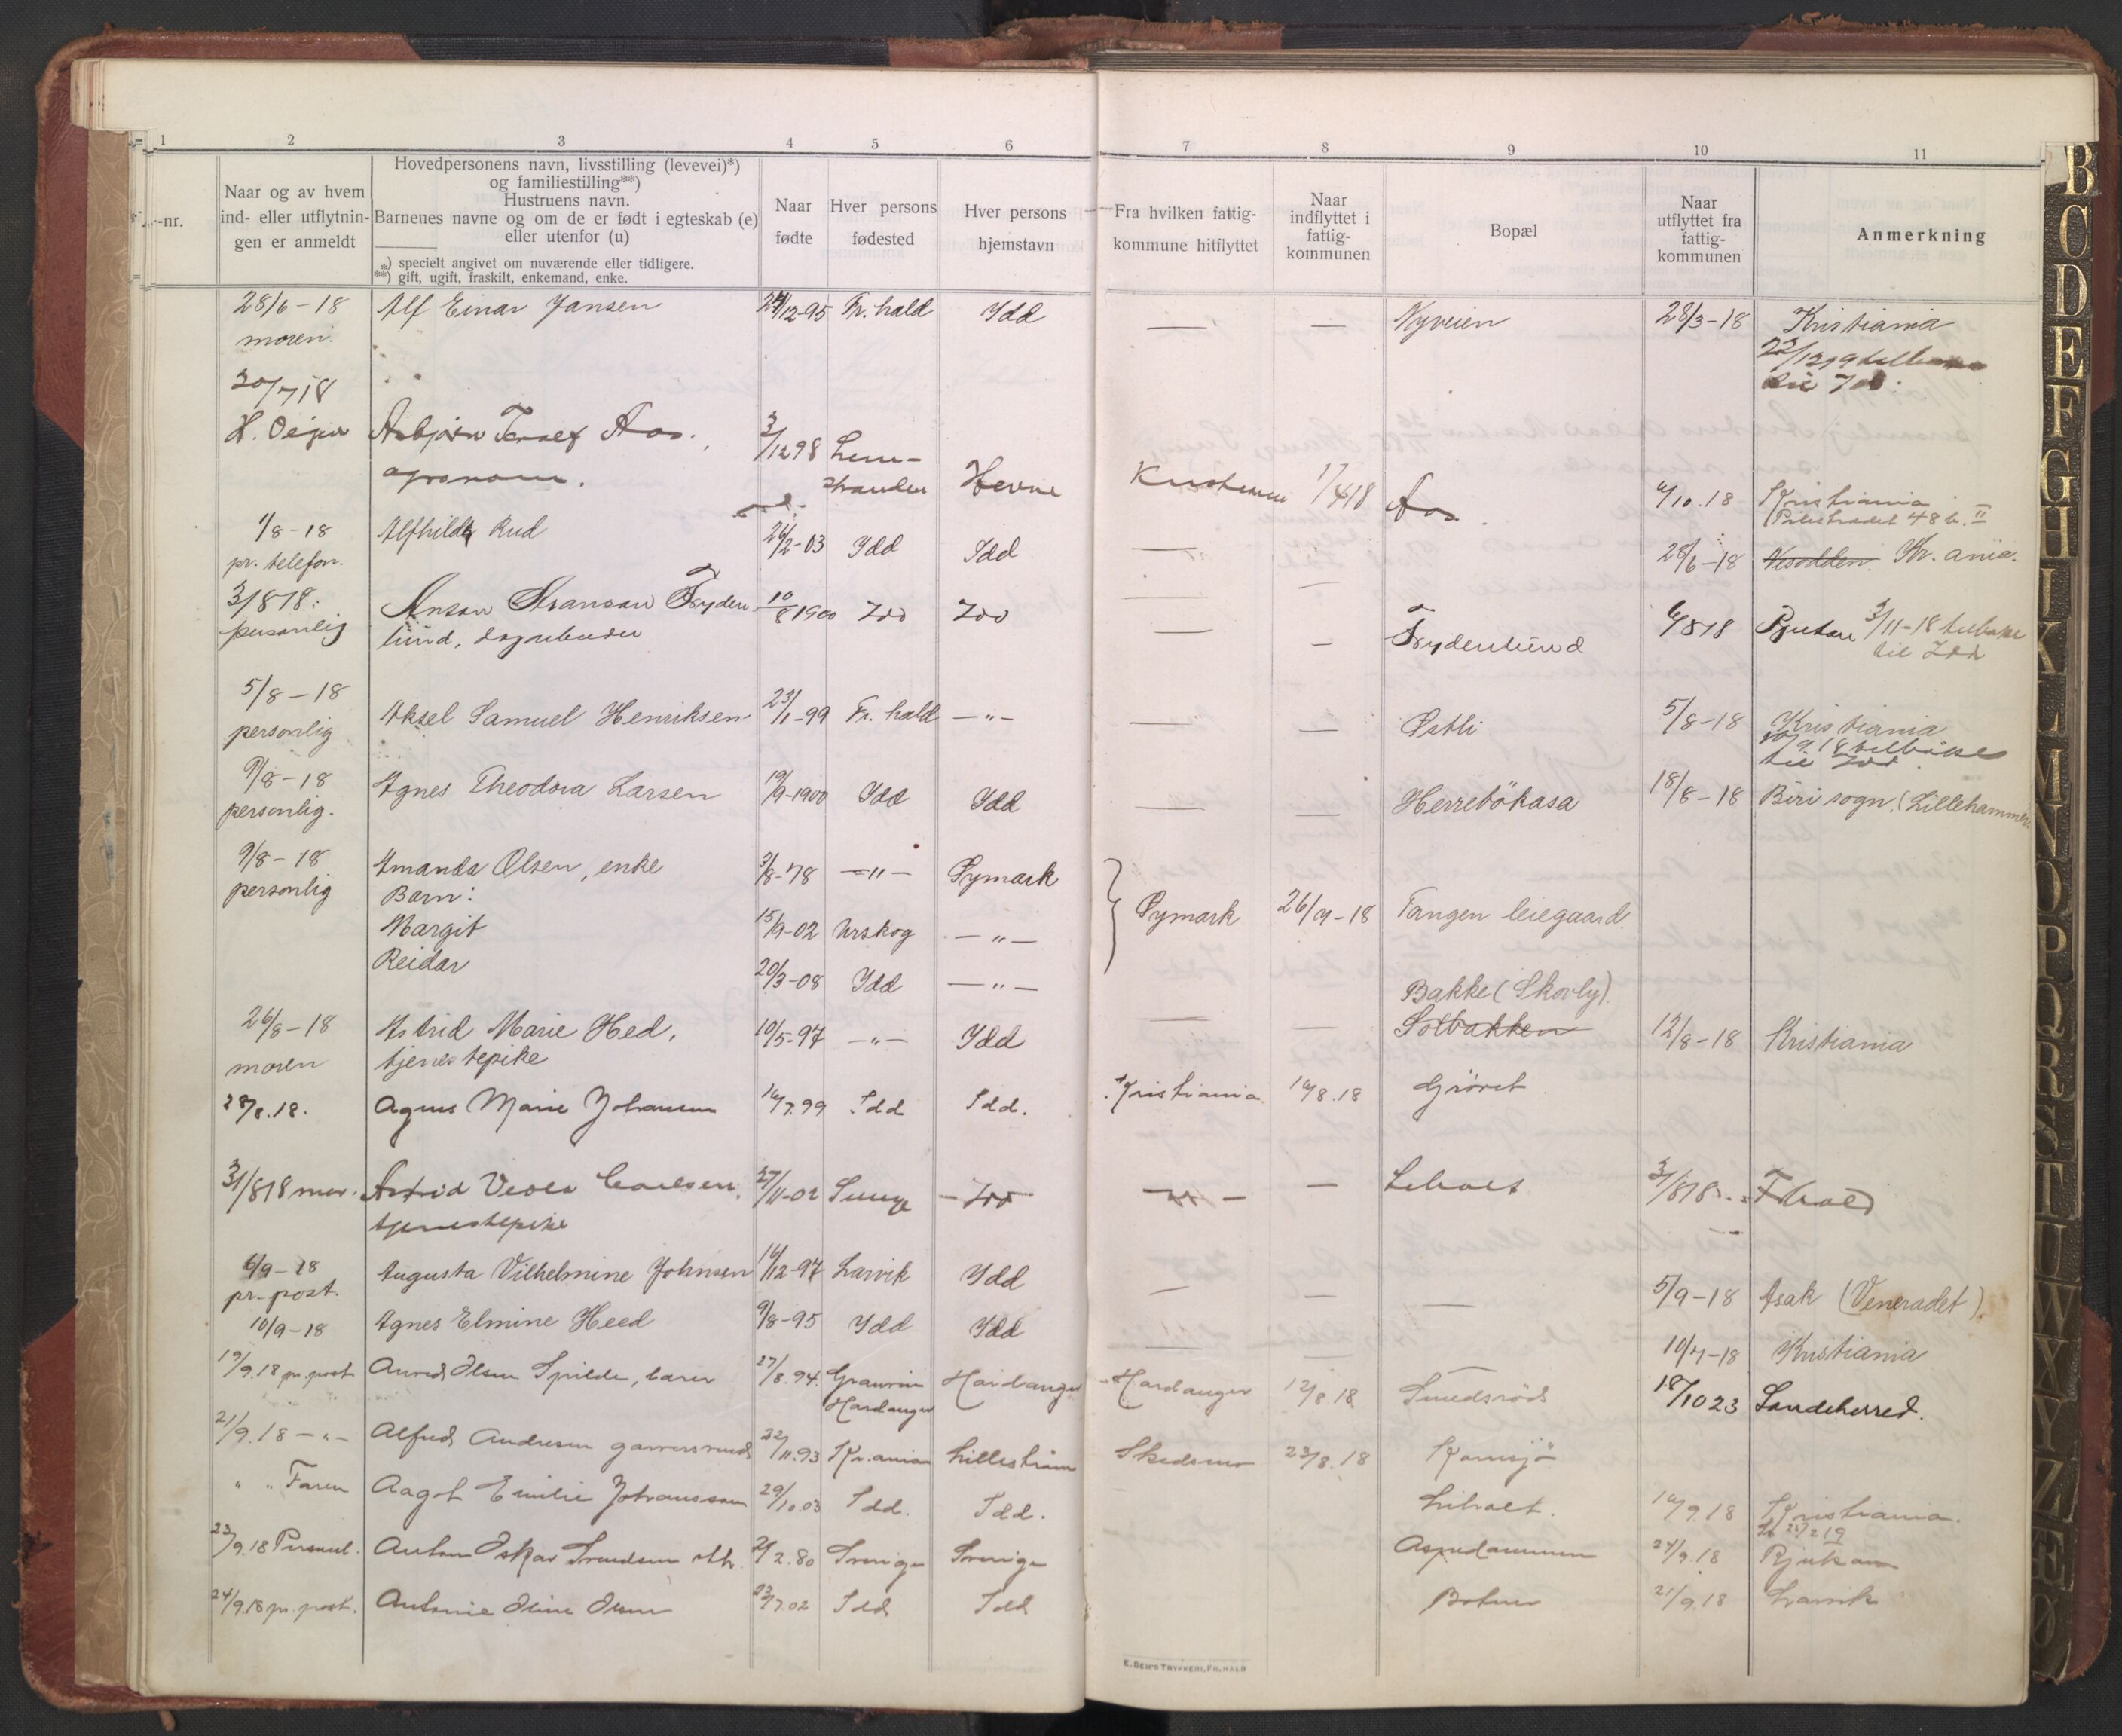 1 2 3 4 5 6 7 8 9 10 11
-nr.
Naar og av hvem
ind- eller utflytnin-
gen er anmeldt
Hovedpersonens navn, livsstilling (levevei)*)
og familiestilling**)
Hustruens navn.
Barnenes navne og om de er født i egteskab (e)
eller utenfor (u)
*) specielt angivet om nuværende eller tidligere.
**) gift, ugift, fraskilt, enkemand, enke.
Naar
fødte
Hver persons
fødested
Hver persons
hjemstavn
Fra hvilken fattig-
kommune hitflyttet
Naar
indflyttet i
fattig-
kommunen
Bopæl
Naar
utflyttet fra
fattig-
kommunen
Anmerkning
28/6-18 Alf Einar Jansen 24/12-95 Fr. hald Idd — — Nyveien 28/3-18 Kristiania
moren.
til Idd.
20/7 18
Asbjørn Aas. 3/12 98 17/4 18 Aas. 6/10.18 Kristiania
agronom. Hevne
Pilestrædet 48 b. II
1/8-18 Alfhild Rud 26/2-03 Idd Idd — — 28/6-18 Nesodden. Kr. ania.
pr. telefon.
3/8 18. Anton Fryden- 10/8 1900 Idd Idd — — Frydenlund 6/8 18 Rjukan 3/11-18 tilbake
personlig lund, dagarbeider til Idd
5/8-18 Aksel Samuel Henriksen 23/1-99 Fr. hald —"— — — Østli 5/8-18 Kristiania
personlig 18 tilbake
til Idd.
9/8-18 Agnes Theodora Larsen 19/9-1900 Idd Idd — — Herrebökasa 18/8-18 Biri sogn. (Lillehammer
personlig.
9/8-18 Amanda Olsen, enke 3/8-78 —"— Øymark Øymark 26/7-18 Tangen leiegaard.
personlig Barn:
Margit 15/9-02 Urskog —"—
Reidar 20/3-08 Idd —"—
Bakke (Skovly).
26/8-18 Astrid Marie Hed, 10/5-97 —"— Idd — — Solbakken 12/8-18 Kristiania
moren tjenestepike
28/8.18. Agnes Marie Johansen 16/7.99 Idd Idd. Kristiania 16/8.18 Grøret
31/8 18 mor. Astrid Carlsen. 27/11-02 Idd — — Liholt 3/8 18. F.hald
tjenestepike
6/9-18 Augusta Vilhelmine Johnsen 16/12-97 Larvik Idd — — — 5/9-18 Asak (Veneradet).
pr. post.
10/9-18 Agnes Elmine Heed 9/8-95 Idd Idd — — — 10/7-18 Kristiania
19/9.18 pr. post Olsen Spilde, lærer 27/8.94. Hardanger Hardanger 12/8.18 Smedsrød 18/10 23 Sandeherred.
Hardanger
21/9.18 —"— Alfred Andresen 22/11.93 Kr.ania Lillestrøm Skedsmo 23/8.18 Kornsjø
" " Faren Aagot Emilie Johanssen 29/10.03 Idd. Idd. Liholt. 16/9.18 Kristiania.
23/9.18 Personl. Anton Oskar Svendsen 2/2.80 Sverige Sverige Aspedammen 24/9.18 Rjukan
24/9.18 pr. post. Antonie Oline Olsen 23/7.02 Idd Idd 21/9.18 Larvik
E. SEM'S TRYKKERI, FR.HALD
B
C
D
E
F
G
H
I
K
L
M
N
O
P
Q
R
S
T
U
W
X
Y
Z
Æ
Ø